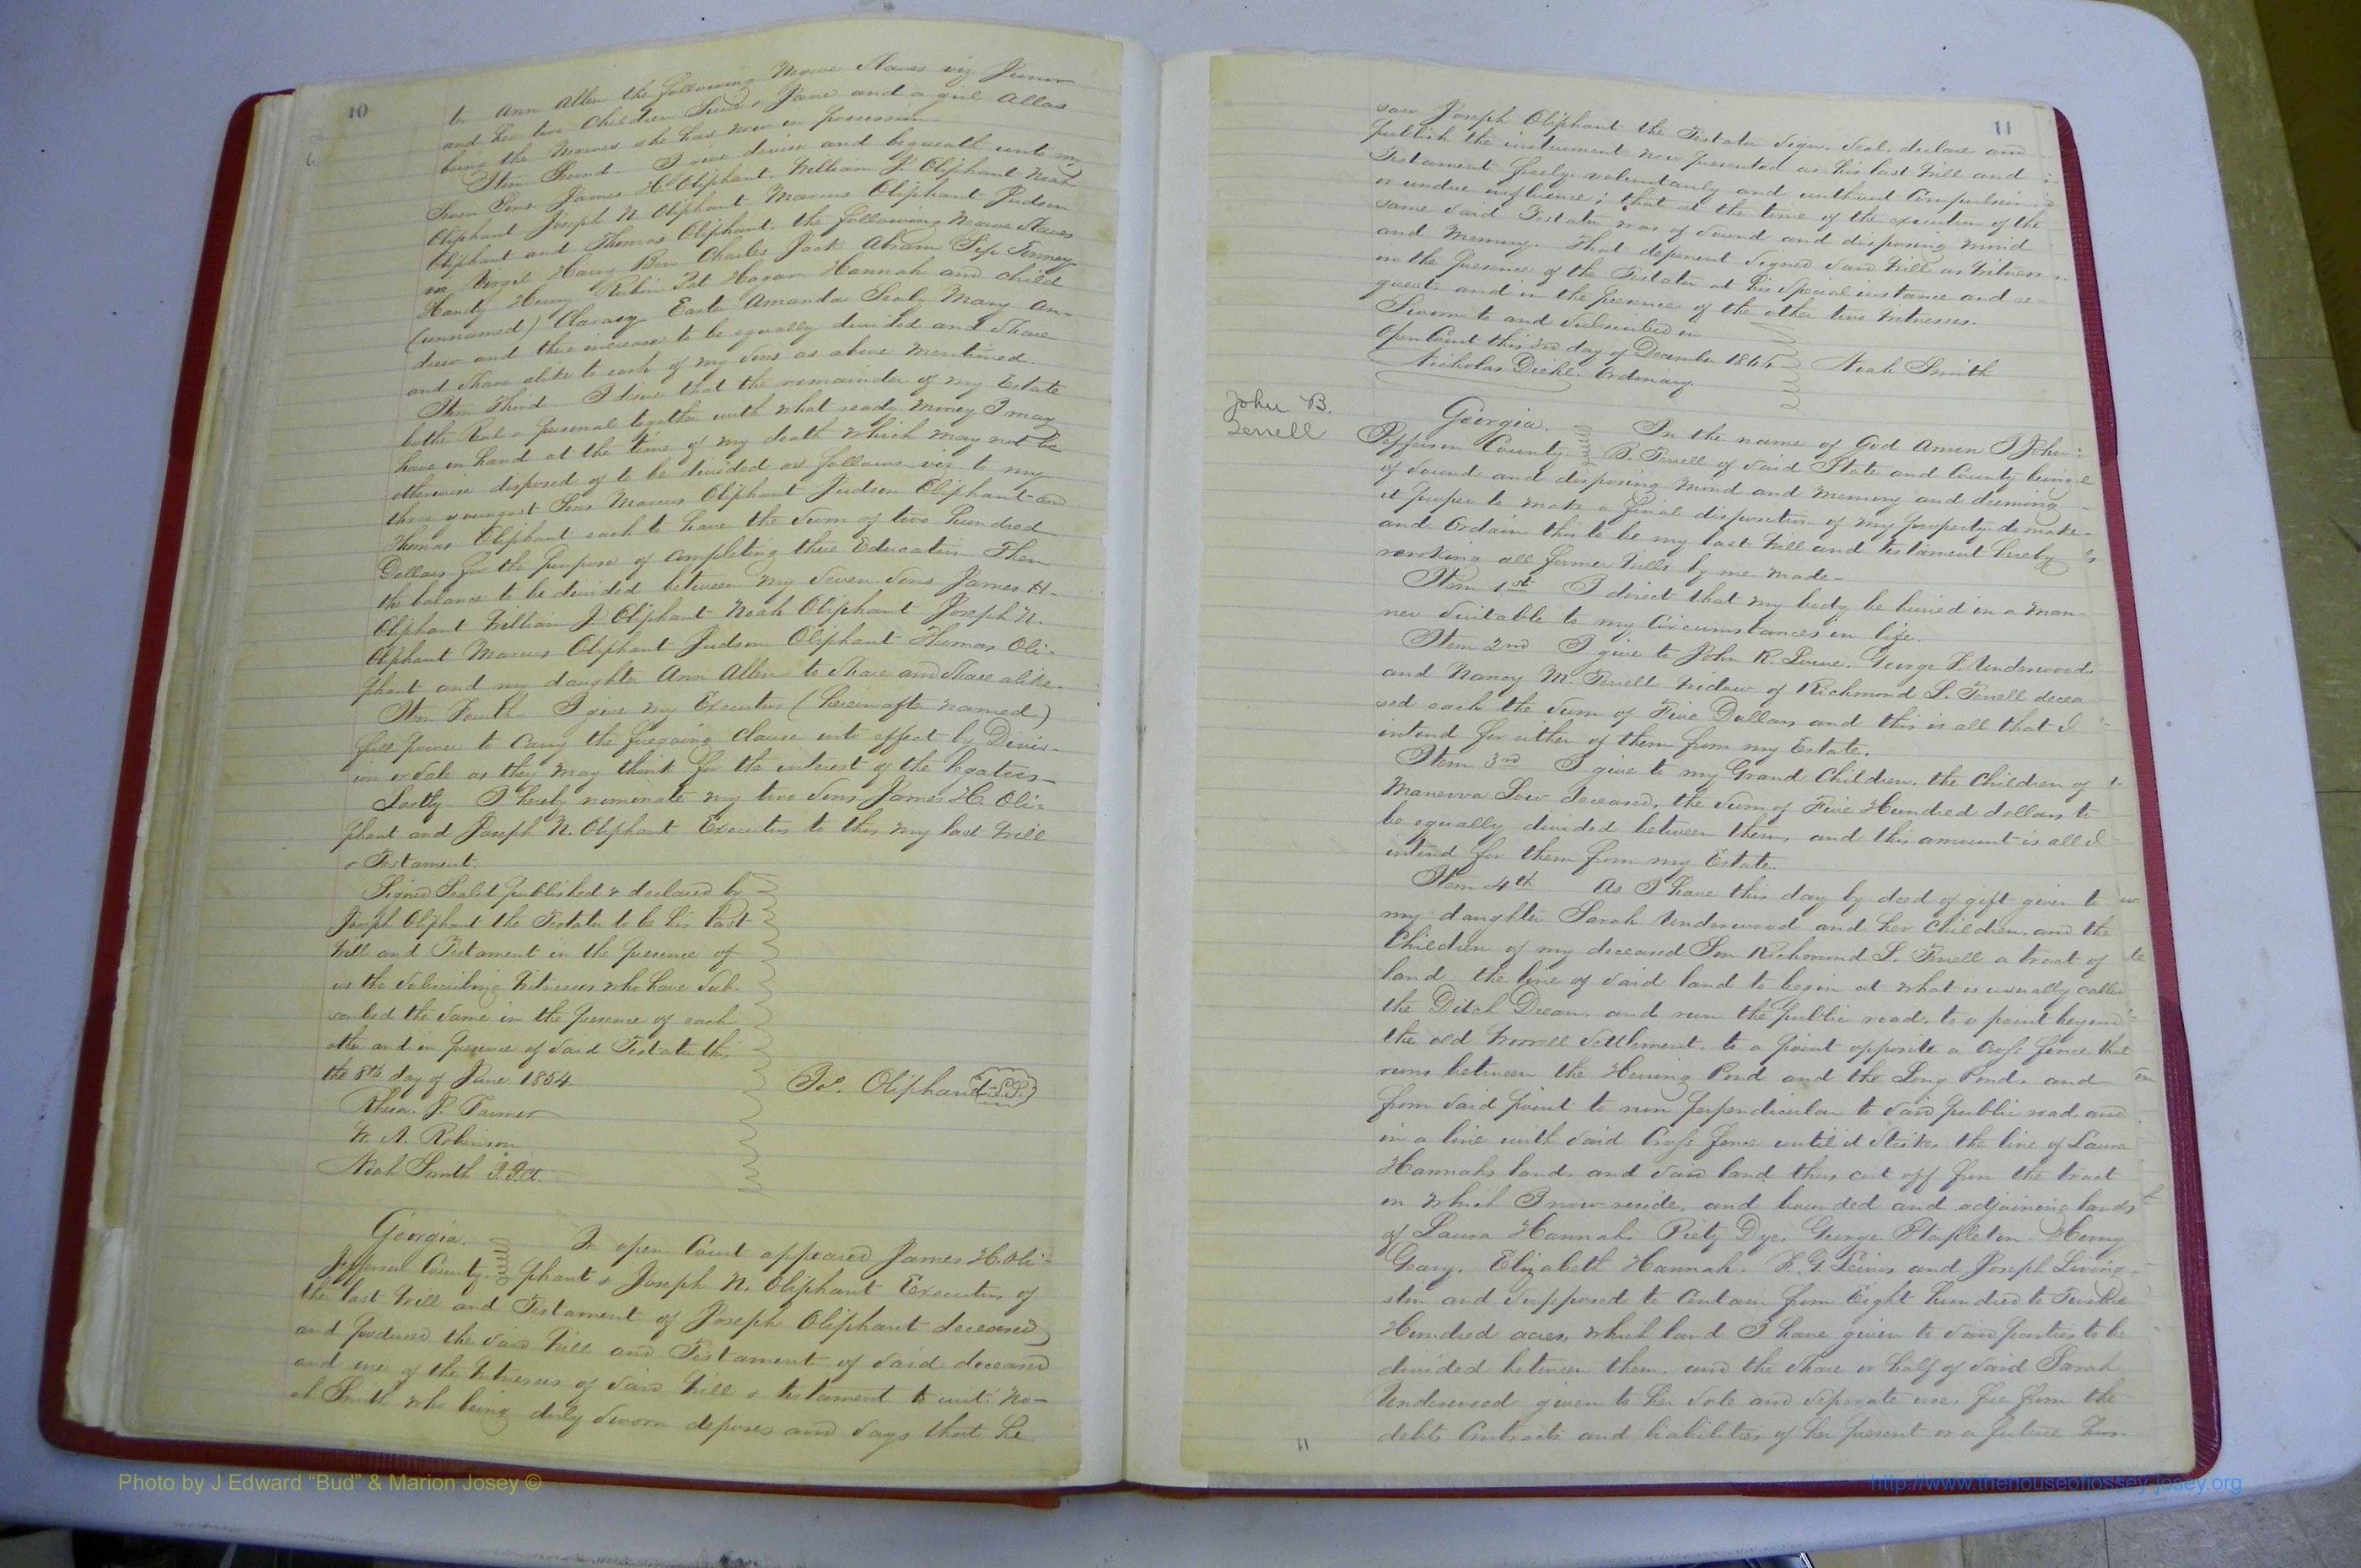 10
to Ann Allen the following Negroe Slaves viz Juner
and her two Children Susie & Jane and a girl Allas
being the Negroes she has now in possession
Item Second I give devise and bequeath unto my
Seven Sons James H. Oliphant, William J. Oliphant Noah
Oliphant Joseph N. Oliphant Marcus Oliphant Judson
Oliphant and Thomas Oliphant, the following Negroe Slaves
viz Virgil Harry Ben Charles Jack Abram Sip Tenney
Handy Henry Rubin Pat Hagar Hannah and child
(unnamed) Clarasy Easter Amanda Sealy Mary An-
drew and their increase to be equally divided and Share
and Share alike to each of my Sons as above mentioned.
Item Third I desire that the remainder of my Estate
bothe Real & personal together with what ready Money I may
have on hand at the time of my death which may not be
otherwise disposed of to be divided as follows viz to my
three youngest Sons Marcus Oliphant Judson Oliphant and
Thomas Oliphant each to have the Sum of two hundred
Dollars for the purpose of completing their Education. Then
the balance to be divided between my Seven Sons James H.
Oliphant William J. Oliphant Noah Oliphant Joseph N.
Oliphant Marcus Oliphant Judson Oliphant Thomas Oli-
phant and my daughter Ann Allen to Share and Share alike.
Item Fourth I give my Executors (hereinafter named)
full power to carry the foregoing Clause into effect by Divis-
ion or Sale as they may think for the interest of the legatees—
Lastly I hereby nominate my two Sons James H. Oli-
phant and Joseph N. Oliphant Executors to this my last Will
& Testament.
Signed Sealed published & declared by
Joseph Oliphant the Testator to be his last
Will and Testament in the presence of
us the Subscribing Witnesses who have Sub-
scribed the Same in the presence of each
other and in presence of Said Testator this
the 8th day of June 1854
Jos. Oliphant (L.S.)
Rhesa. J. Farmer
W. A. Robinson
Noah Smith J.I.C.
Georgia. In open Court appeared James H. Oli-
Jefferson County. phant & Joseph N. Oliphant Executors of
the last Will and Testament of Joseph Oliphant deceased
and produced the Said Will and Testament of Said deceased
and one of the Witnesses of Said Will & testament to wit: No-
ah Smith who being duly Sworn deposes and Says that he
11
saw Joseph Oliphant the Testator Sign, Seal, declare and
publish the instrument now presented as his last Will and
Testament freely, voluntarily and without Compulsion,
or undue influence; that at the time of the execution of the
same Said Testator was of Sound and disposing mind
and Memory. That deponent Signed Said Will as Witness
in the presence of the Testator at his Special instance and re-
quest, and in the presence of the other two Witnesses.
Sworn to and Subscribed in
open Court this 3rd day of December 1866
Noah Smith
Nicholas Diehl. Ordinary
John B.
Terrell
Georgia. In the name of God Amen I John
Jefferson County. B. Terrell of Said State and County being
of Sound and disposing Mind and Memory and deeming
it proper to make a final disposition of my property do make
and Ordain this to be my last Will and testament hereby
revoking all former Wills by me made.
Item 1st I direct that my body be buried in a Man-
ner Suitable to my Circumstances in life.
Item 2nd I give to John R. Lowe, George F. Underwood
and Nancy M. Terrell Widow of Richmond L. Terrell decea-
sed each the Sum of Five Dollars and this is all that I
intend for either of them from my Estate.
Item 3rd I give to my Grand Children, the Children of
Manerva Low deceased, the Sum of Five Hundred dollars to
be equally divided between them, and this amount is all I
intend for them from my Estate.
Item 4th As I have this day by deed of gift given to
my daughter Sarah Underwood and her Children, and the
Children of my deceased Son Richmond L. Terrell a tract of
land the line of Said land to begin at what is usually called
the Ditch Drean, and run the public road, to a point beyond
the old Worrell Settlement, to a point opposite a Cross fence that
runs between the Herring Pond and the Long Pond, and
from Said point to run perpendicular to Said public road, and
in a line with Said Cross fence until it Strikes the line of Laura
Hannahs land, and Said land thus cut off from the tract
on which I now reside, and bounded and adjoining lands
of Laura Hannah, Piety Dye, George Stapleton Henry
Geary. Elizabeth Hannah. F. G. Lewis and Joseph Living-
ston and Supposed to Contain from Eight hundred to Twelve
Hundred acres, which land I have given to Said parties to be
divided between them, and the Share or half of Said Sarah
Underwood given to her Sole and Seperate use, free from the
debts Contracts and liabilities of her present or a future Hus-
11
Photo by J Edward "Bud" & Marion Josey ©
http://www.thehouseofjossey-josey.org